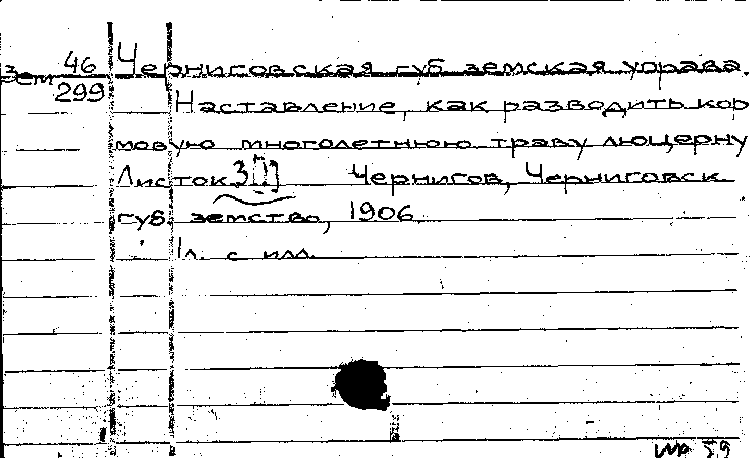 46 Черниговская губ. земская управа.
зем 299
Наставление, как разводить кор
мовую многолетнюю траву люцерну
Листок Чернигов, Черниговск.
губ. земство, 1906.
1л. с илл.
59